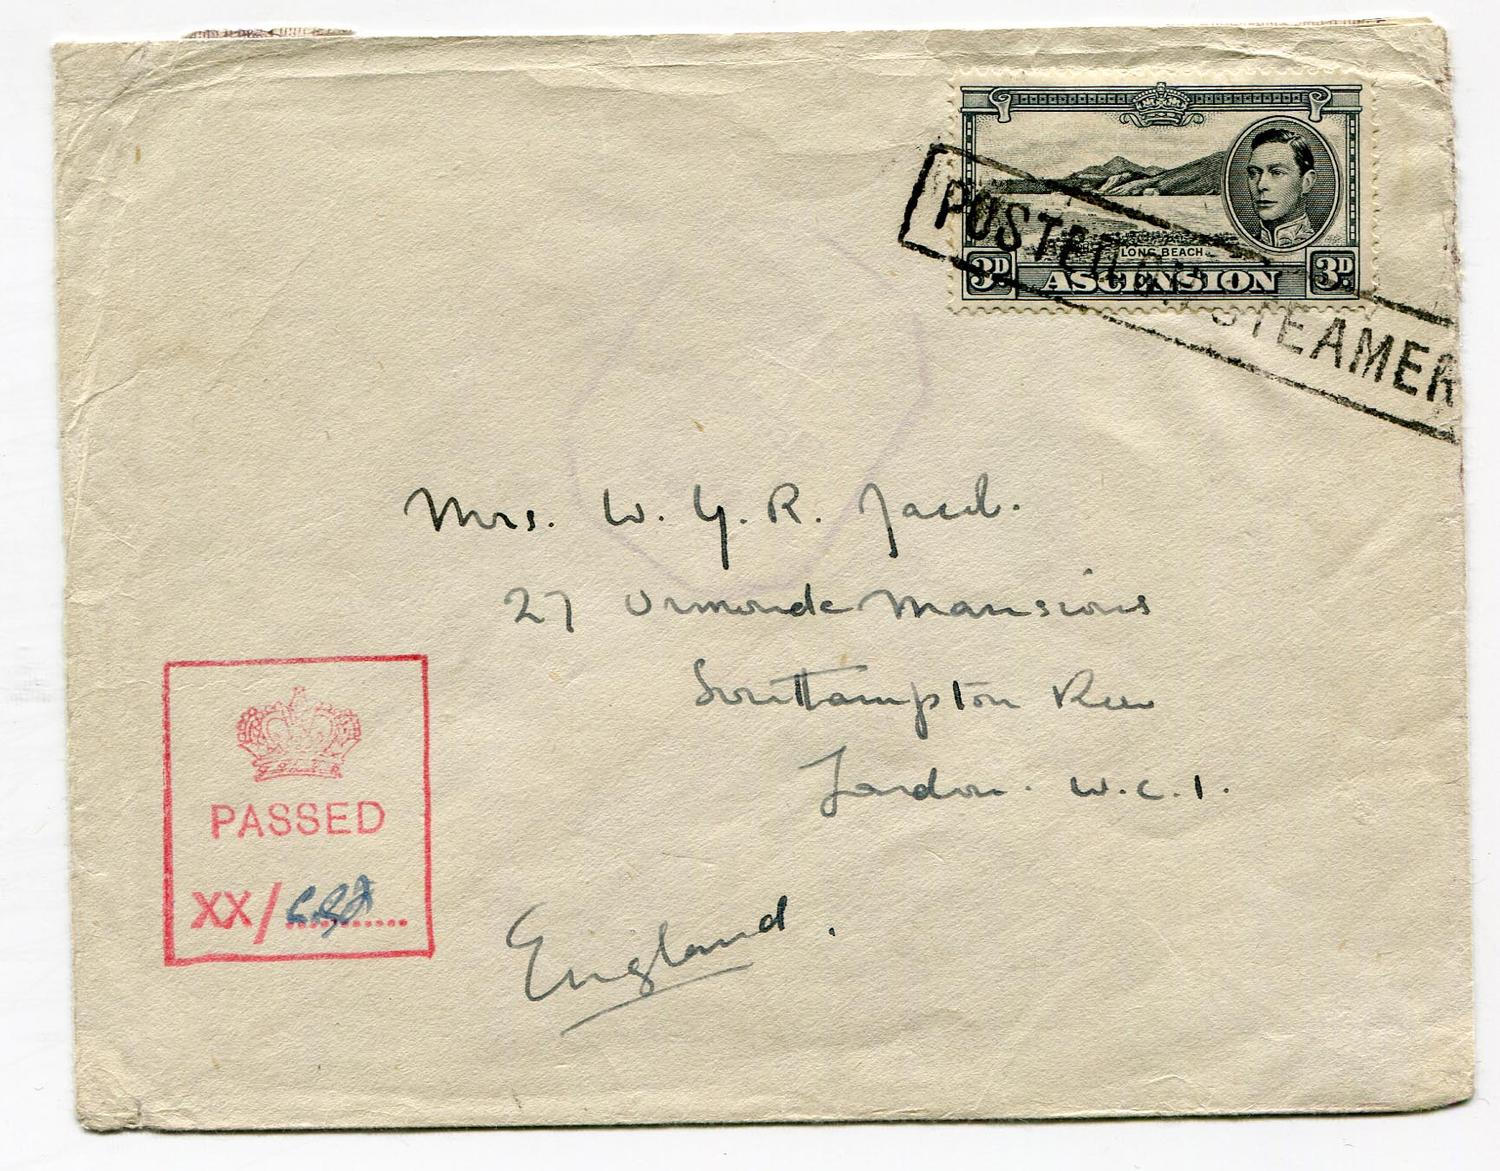 LONG BEACH
3D. ASCENSION 3D.
POSTED ON STEAMER
Mrs. W. Y. R. Jacob.
27 Ormonde Mansions
Southampton Row
London. W.C.1.
England.
PASSED
XX/